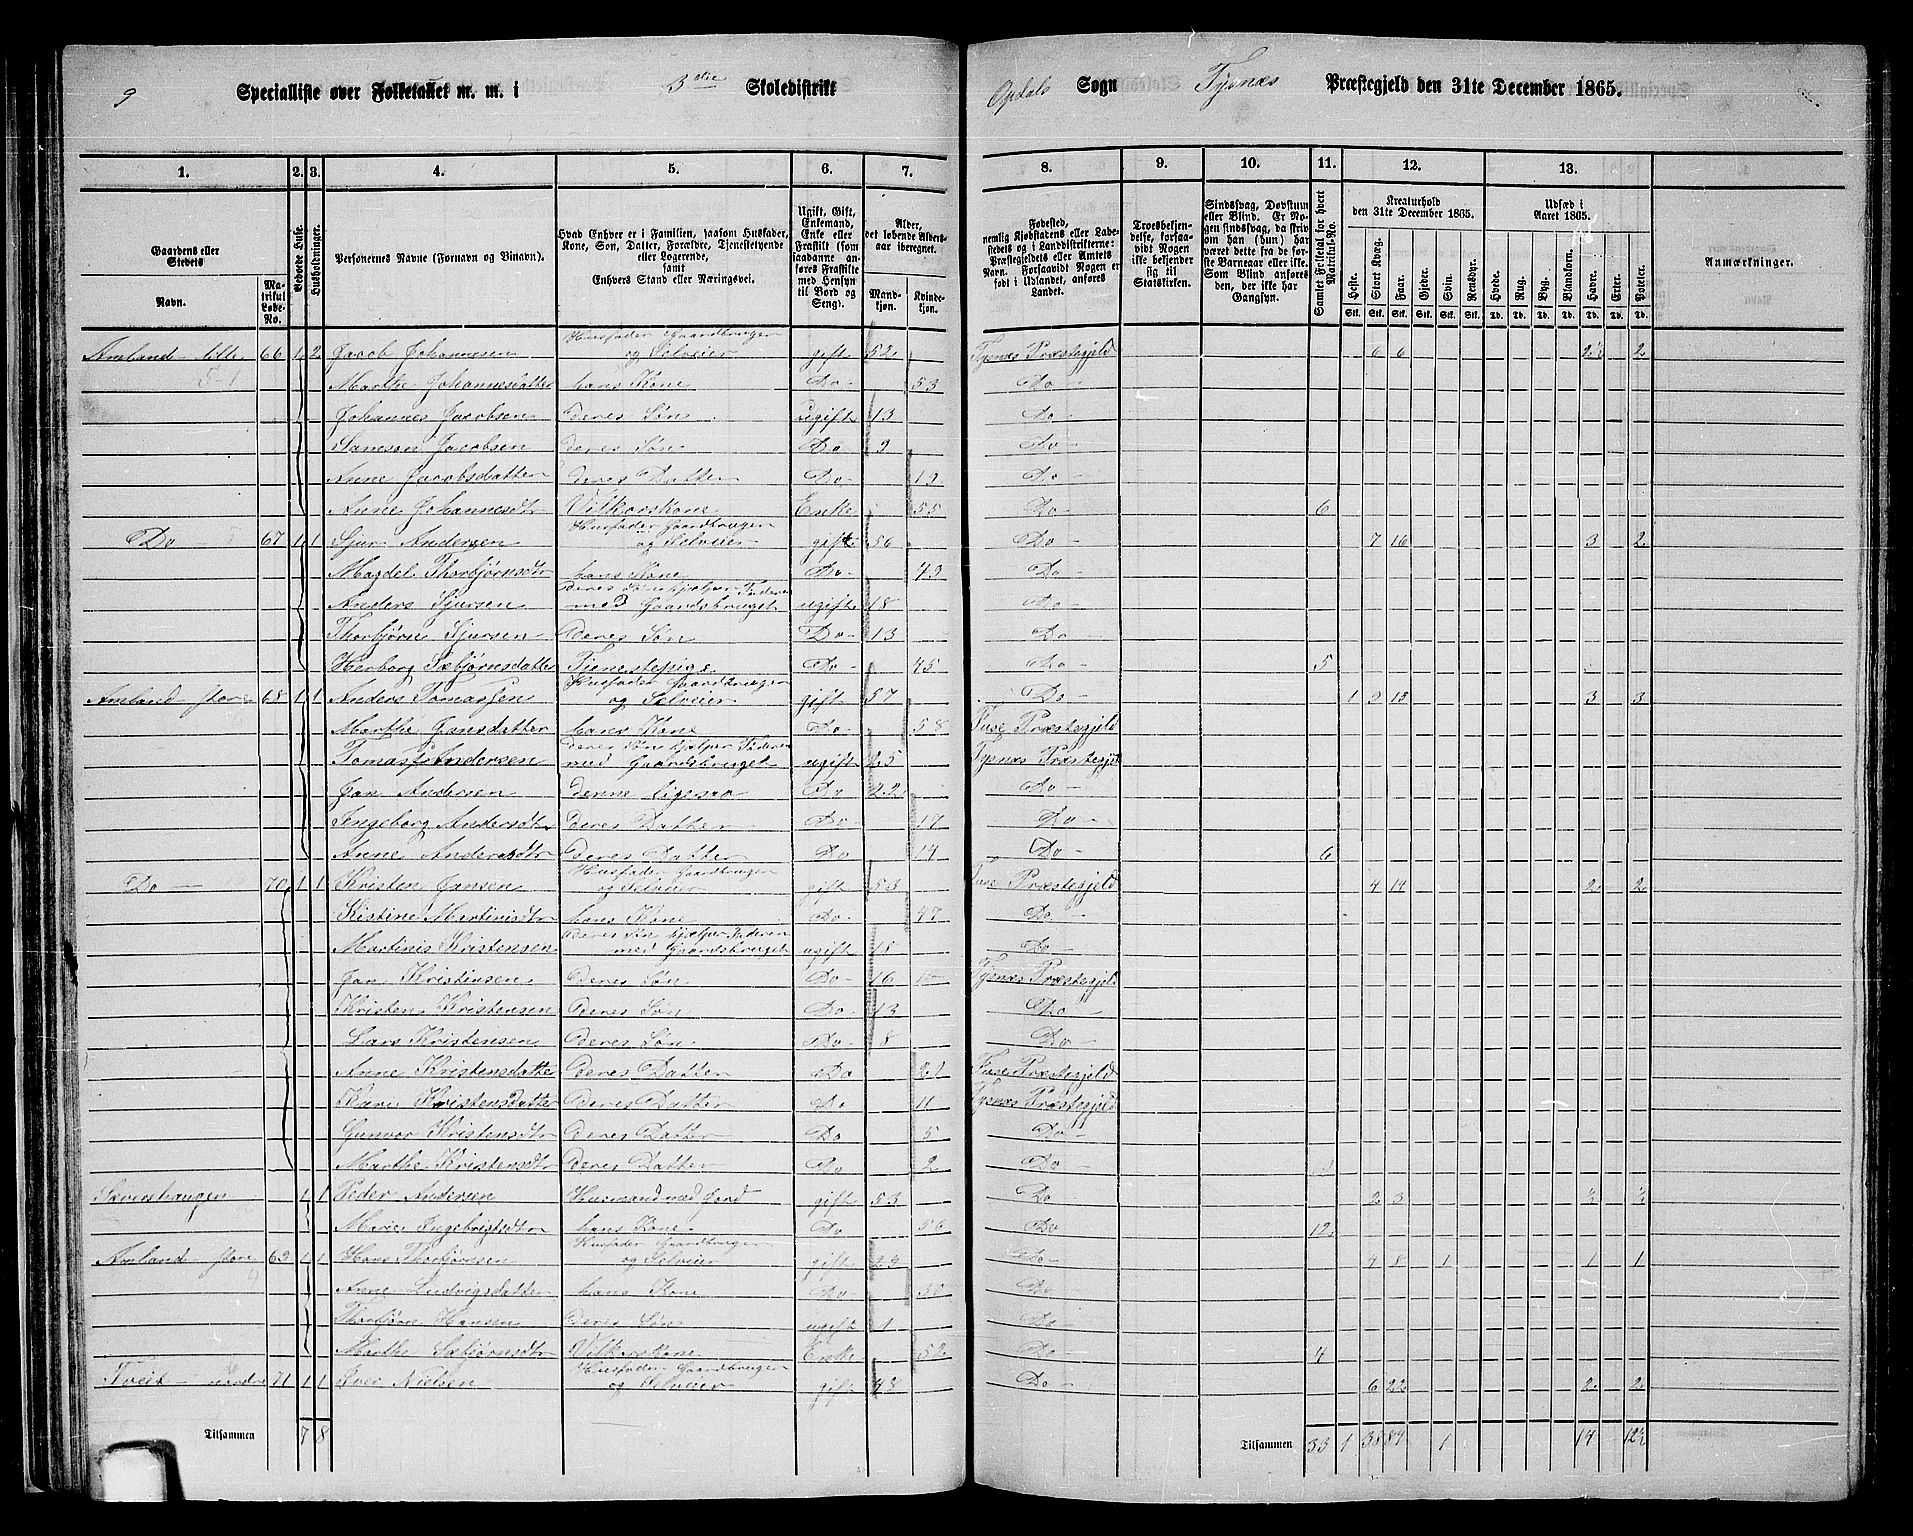 9 Specialliste over Folketallet m. m. i 3die Skoledistrikt Opdals Sogn Tysnæs Præstegjeld den 31te December 1865.
1. 2. 3. 4. 5. 6. 7. 8. 9. 10. 11. 12. 13.
Gaardens eller Stedets Navn. Matrikul Løbe-No. Beboede Huse. Husholdninger. Personernes Navne (Fornavn og Tilnavn).
Hvad Enhver er i Familien, saasom Husfader, Kone, Søn, Datter, Forældre, Tjenestetyende eller Logerende, samt Enhvers Stand eller Næringsvei.
Ugift, Gift, Enkemand, Enke eller Fraskilt (som saadanne anføres Fraskilte med Hensyn til Bord og Seng).
Alder, det løbende Aldersaar iberegnet. Mandkjøn. Kvindekjøn.
Fødested, nemlig Kjøbstadens eller Ladestedets eller i Landdistrikterne: Præstegjeldets og Amtets Navn. Forsaavidt Nogen er født i Udlandet, anføres Landet.
Troesbekjendelse, forsaavidt Nogen ikke bekjender sig til Statskirken.
Sindssvag, Døvstum eller Blind. Er Nogen sindssvag, da skriv om han (hun) har været dette fra de første Barneaar eller ei. Som Blind anføres den, der ikke har Gangsyn.
Samlet Folketal for hvert Matrikul-No.
Kreaturhold den 31te December 1865. Heste. Stort Kvæg. Faar. Gjeder. Svin. Rensdyr.
Udsæd i Aaret 1865. Hvede. Rug. Byg. Blandkorn. Havre. Erter. Poteter.
Anmærkninger.
Amland lille 66 1 2 Jacob Johannesen Husfader Gaardbruger og Selveier gift 52 Tysnæs Præstegjeld 6 6 2½ 2
Marthe Johannesdatter hans Kone Do 53 Do
Johannes Jacobsen deres Søn ugift 13 Do
Samson Jacobsen deres Søn Do 9 Do
Anne Jacobsdatter deres Datter Do 19 Do
Anne Johannesdtr Vilkorskone Enke 55 Do 6
Do 67 1 1 Sjur Andersen Husfader Gaardbruger og Selveier gift 56 Do 7 16 3 2
Magdel Thorbjørnsdtr hans Kone Do 49 Do
Anders Sjursen deres Søn hjælper Faderen med Gaardsbruget ugift 18 Do
Thorbjørn Sjursen deres Søn Do 13 Do
Herborg Sæbjørnsdatter Tjenestepige Do 45 Do 5
Amland store 68 1 1 Anders Tomassen Husfader Gaardbruger og Selveier gift 57 Do 1 9 18 3 3
Marthe Jansdatter hans Kone Do 58 Fuse Præstegjeld
Tomas Andersen deres Søn hjælper Faderen med Gaardsbruget ugift 25 Tysnæs Præstegjeld
Jan Andersen denne ligesaa Do 22 Do
Ingeborg Andersdtr deres Datter Do 17 Do
Anne Andersdtr deres Datter Do 14 Do 6
Do 70 1 1 Kristen Jansen Husfader Gaardbruger og Selveier gift 53 Fuse Præstegjeld 4 14 2 2
Kistine Martinisdtr hans Kone Do 47 Do
Martinis Kristensen deres Søn hjælper Faderen med Gaardsbruget ugift 18 Do
Jan Kristensen deres Søn Do 16 Tysnæs Præstegjeld
Kristen Kristensen deres Søn Do 13 Do
Lars Kristensen deres Søn Do 8 Do
Anne Kristensdatter deres Datter Do 21 Fuse Præstegjeld
Kari Kristensdatter deres Datter Do 11 Tysnæs Præstegjeld
Gunvor Kristensdtr deres Datter Do 5 Do
Marthe Kristensdtr deres Datter Do 2 Do
1 1 Peder Andersen Husmand med Jord gift 53 Do 2 3 ½ ½
Marie Ingebrigtsdtr hans Kone Do 56 Do 12
Amland store 69 1 1 Hans Thorbjørnsen Husfader Gaardbruger og Selveier gift 29 Do 4 8 1 1 1
Anne Ludvigsdatter hans Kone Do 30 Do
Thorbjørn Hansen deres Søn ugift 1 Do
Marthe Sæbjørnsdtr Vilkorskone Enke 52 Do 4
Tveit nordre 71 1 1 Iver Nielsen Husfader Gaardbruger og Selveier gift 48 Do 6 22 2 2
Tilsammen 7 8 Tilsammen 33 1 38 87 1 14 12½